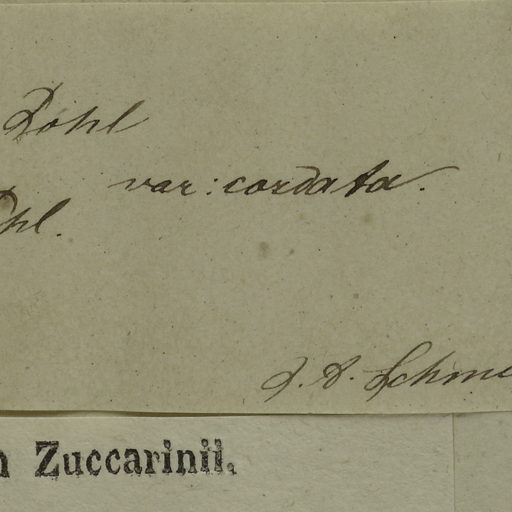 Pohl
var: cordata.
Phl.
J. A. Schm
n Zuccarinii.